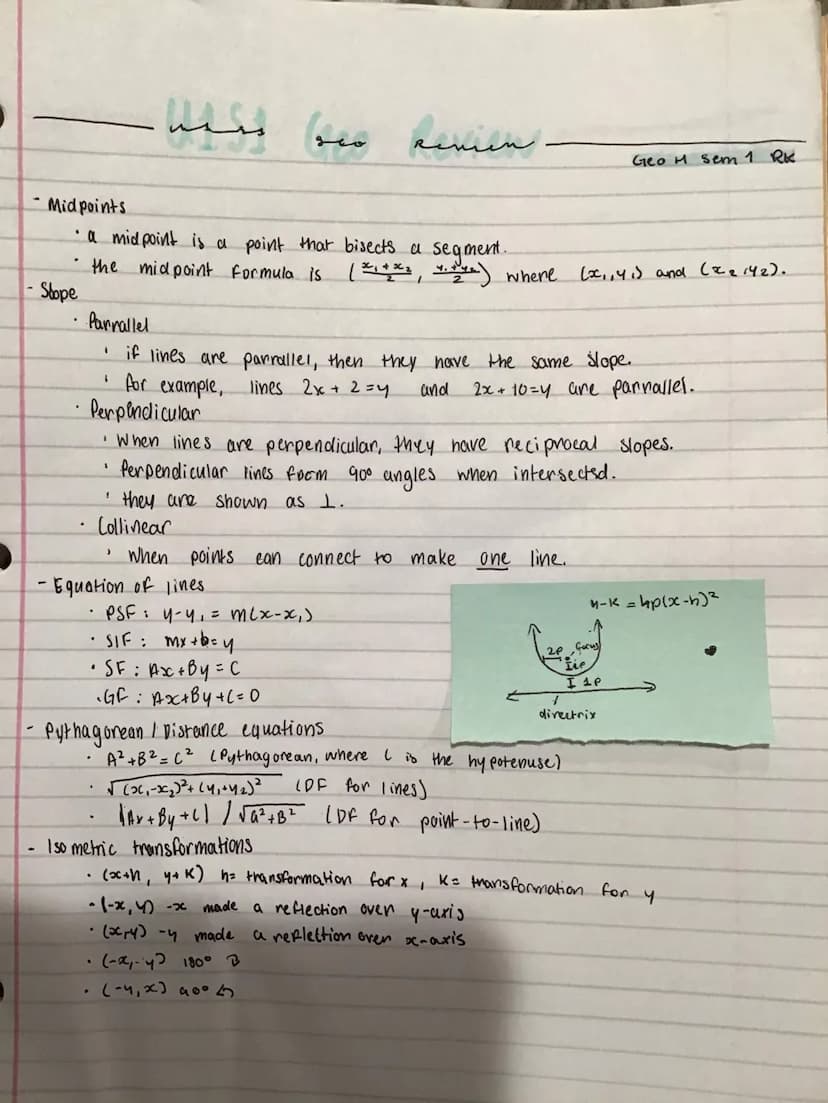 U1S1 Geo Review
Geo H Sem 1 RK
- Midpoints
· a midpoint is a point that bisects a segment.
· the midpoint formula is (x₁+x₂/2, y₁+y₂/2) where (x₁,y₁) and (x₂,y₂).
- Slope
· Parrallel
· if lines are parrallel, then they have the same slope.
· for example, lines 2x+2=y and 2x+10=y are parrallel.
· Perpendicular
· When lines are perpendicular, they have reciprocal slopes.
· Perpendicular lines form 90° angles when intersected.
· they are shown as ⊥.
· Collinear
· when points can connect to make one line.
- Equation of lines
· PSF: y-y₁ = m(x-x₁)
· SIF: mx+b=y
· SF: Ax+By=C
· GF: Ax+By+C=0
y-k = 4p(x-h)²
2p focus
1p
I 1p
directrix
- Pythagorean / Distance equations
· A²+B²=C² (Pythagorean, where C is the hypotenuse)
· √(x₁-x₂)²+(y₁+y₂)² (DF for lines)
· |Ax+By+C| / √a²+B² (DF for point-to-line)
- Isometric transformations
· (x+h, y+k) h= transformation for x, k= transformation for y
· (-x,y) -x made a reflection over y-axis
· (x,-y) -y made a reflection over x-axis
· (-x,-y) 180°
· (-y,x) 90°